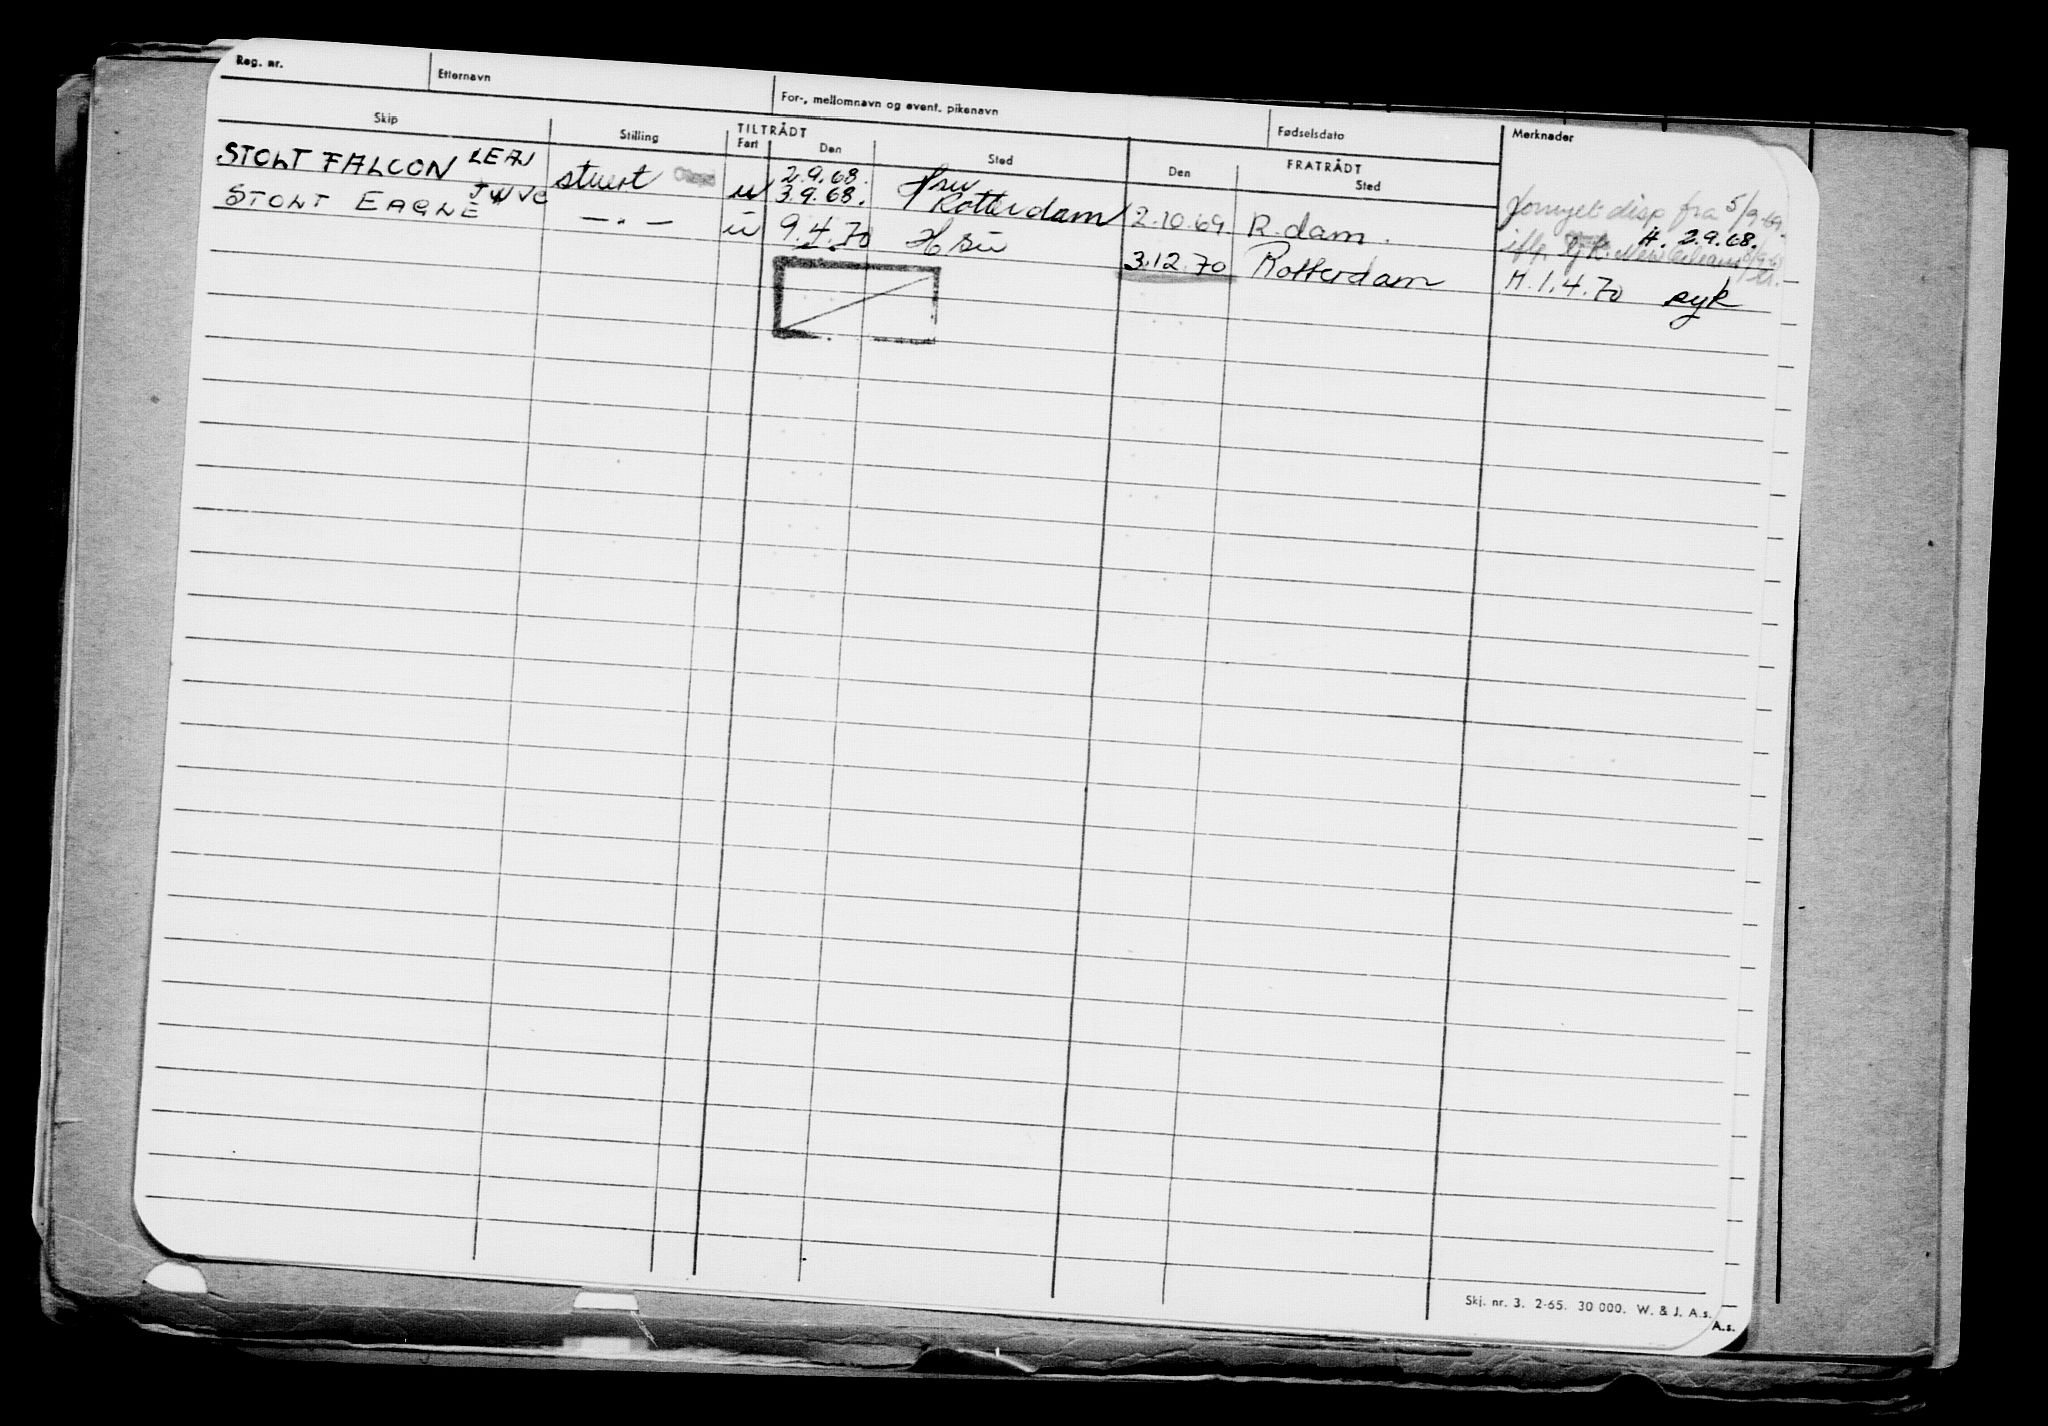 Reg. nr. Etternavn For-, mellomnavn og event. pikenavn Fødselsdato Merknader
Skip Stilling TILTRÅDT FRATRÅDT
Fart Den Sted Den Sted
STOLT FALCON LEAJ stuert u 2.9.68. Hsu
3.9.68. Rotterdam 2.10.69 R.dam. Fornyet disp fra 5/9-69.
H. 2.9.68.
STOLT EAGLE JWVC —.— u 9.4.70 Hsu New Orleans
3.12.70 Rotterdam H. 1.4.70 syk
Skj. nr. 3. 2-65. 30 000. W. & J. A.s.
A.s.